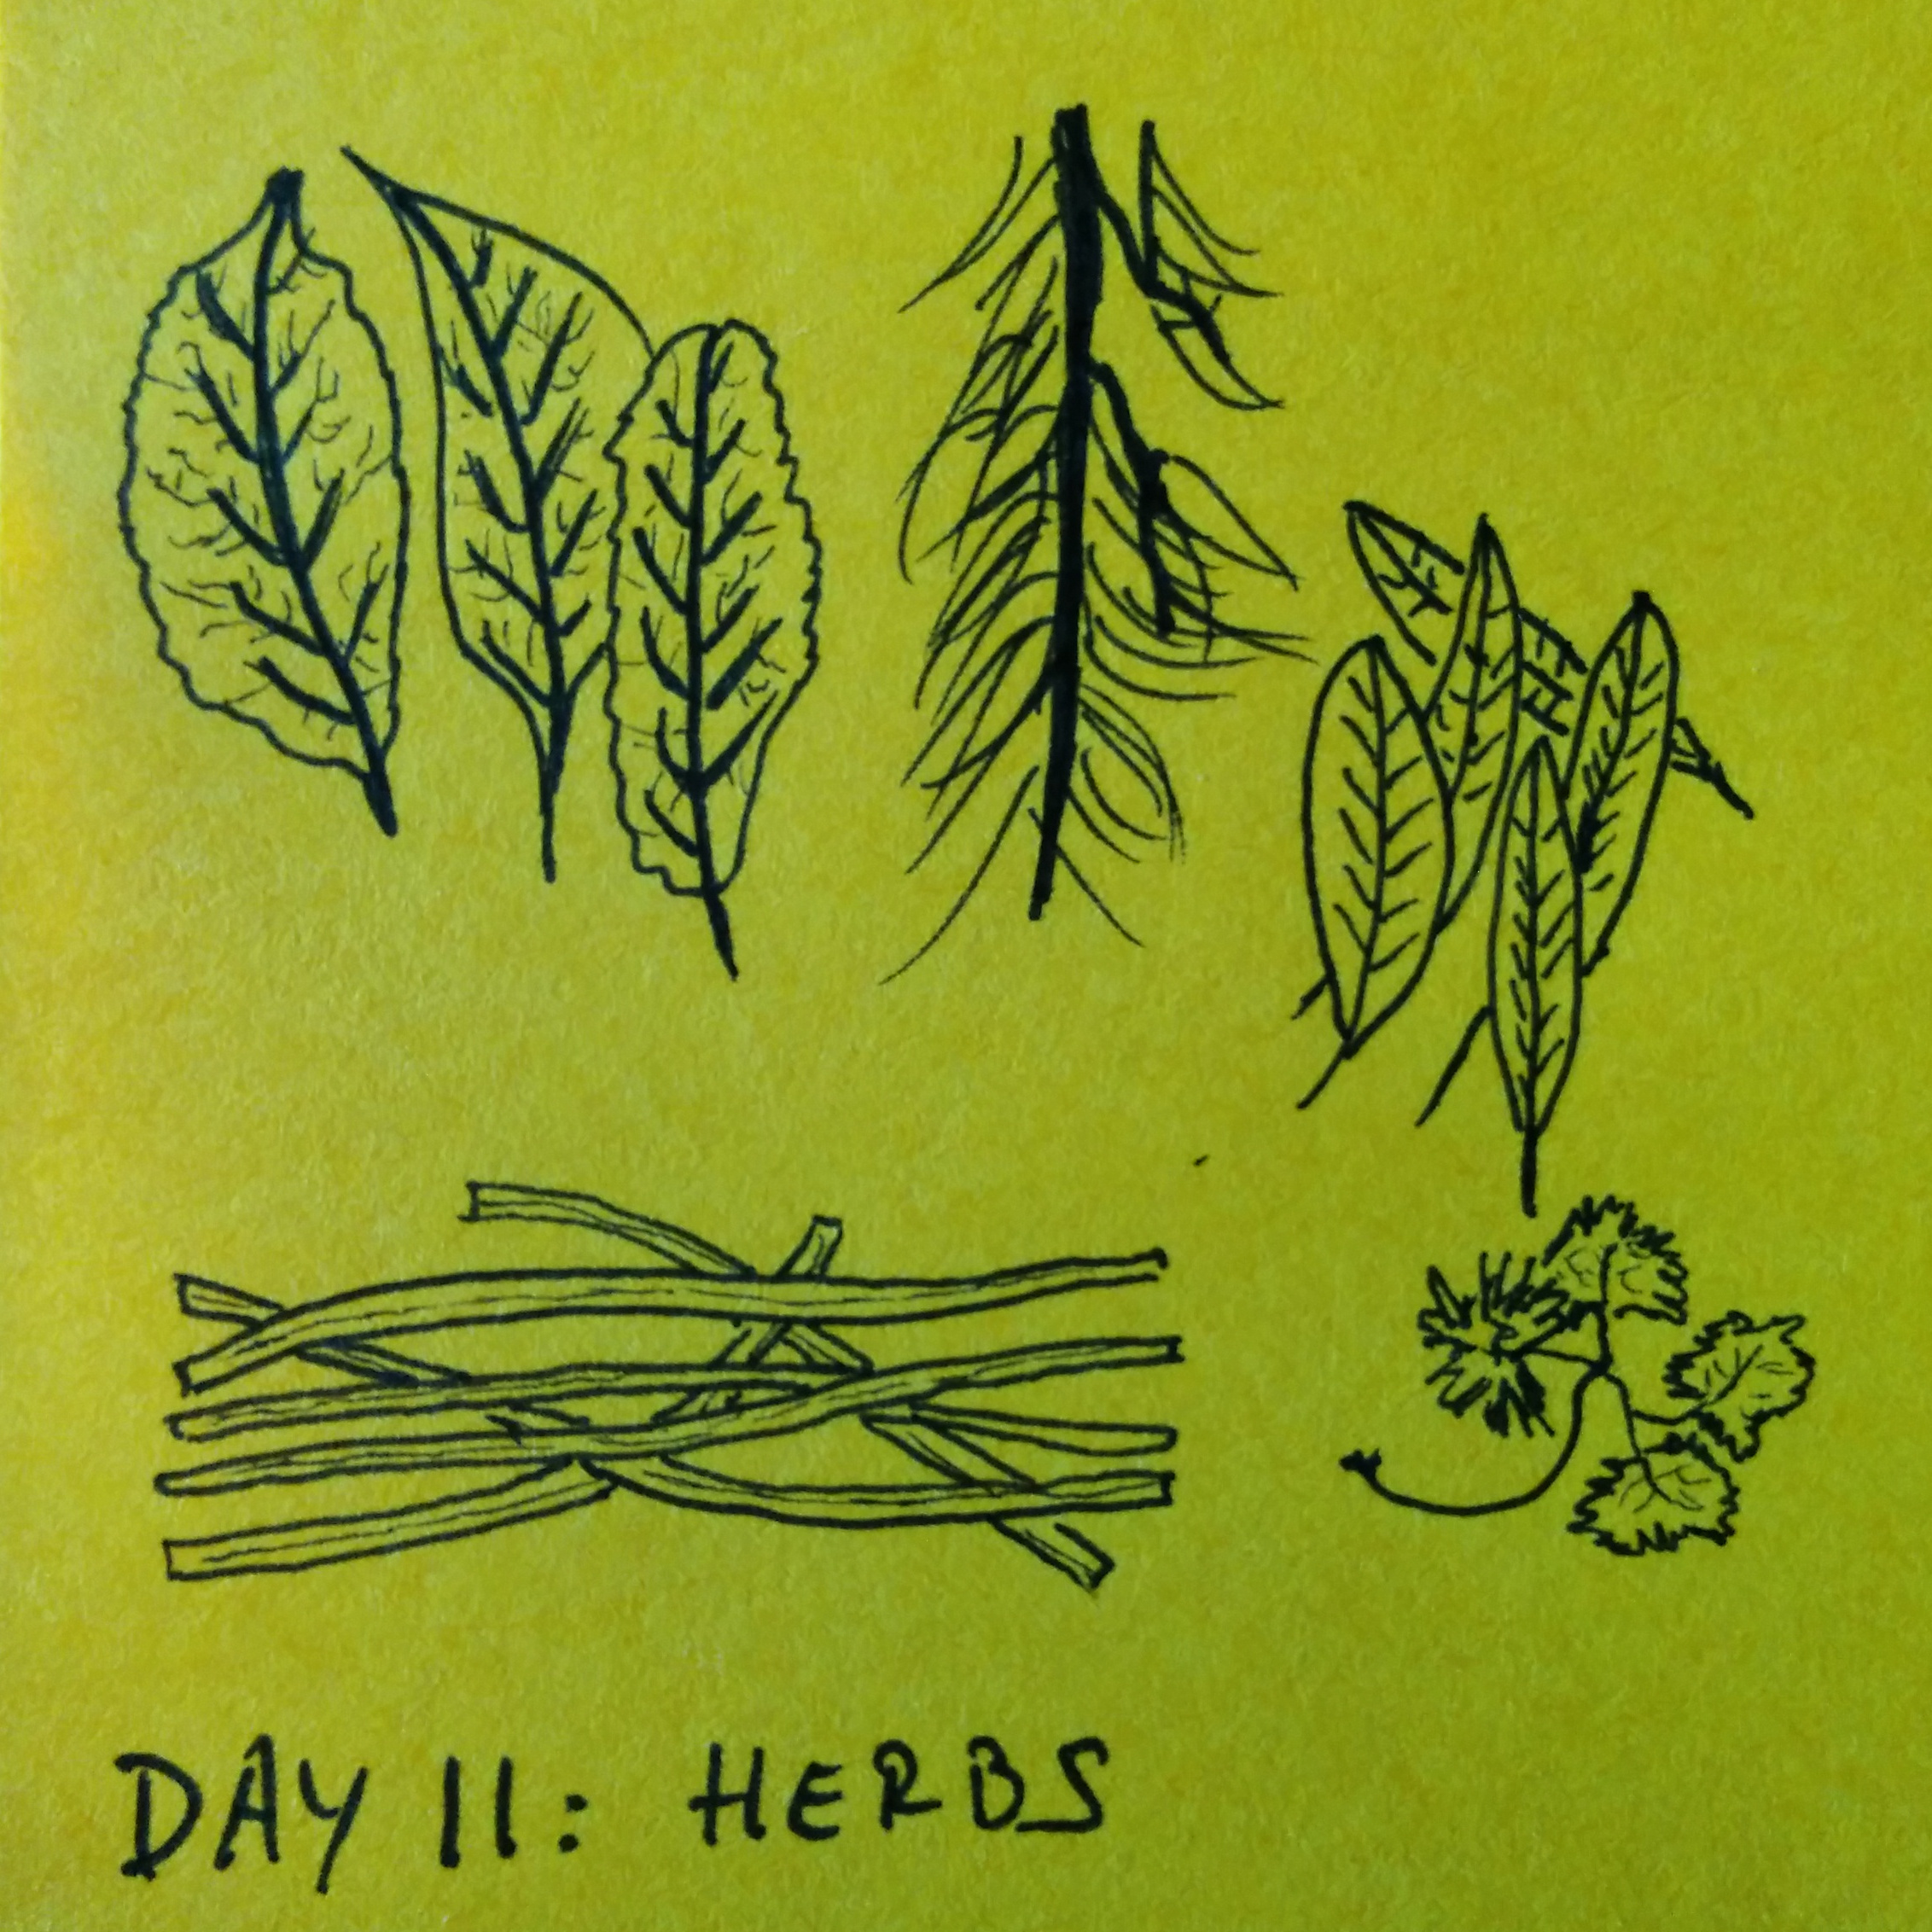 DAY 11: HERBS